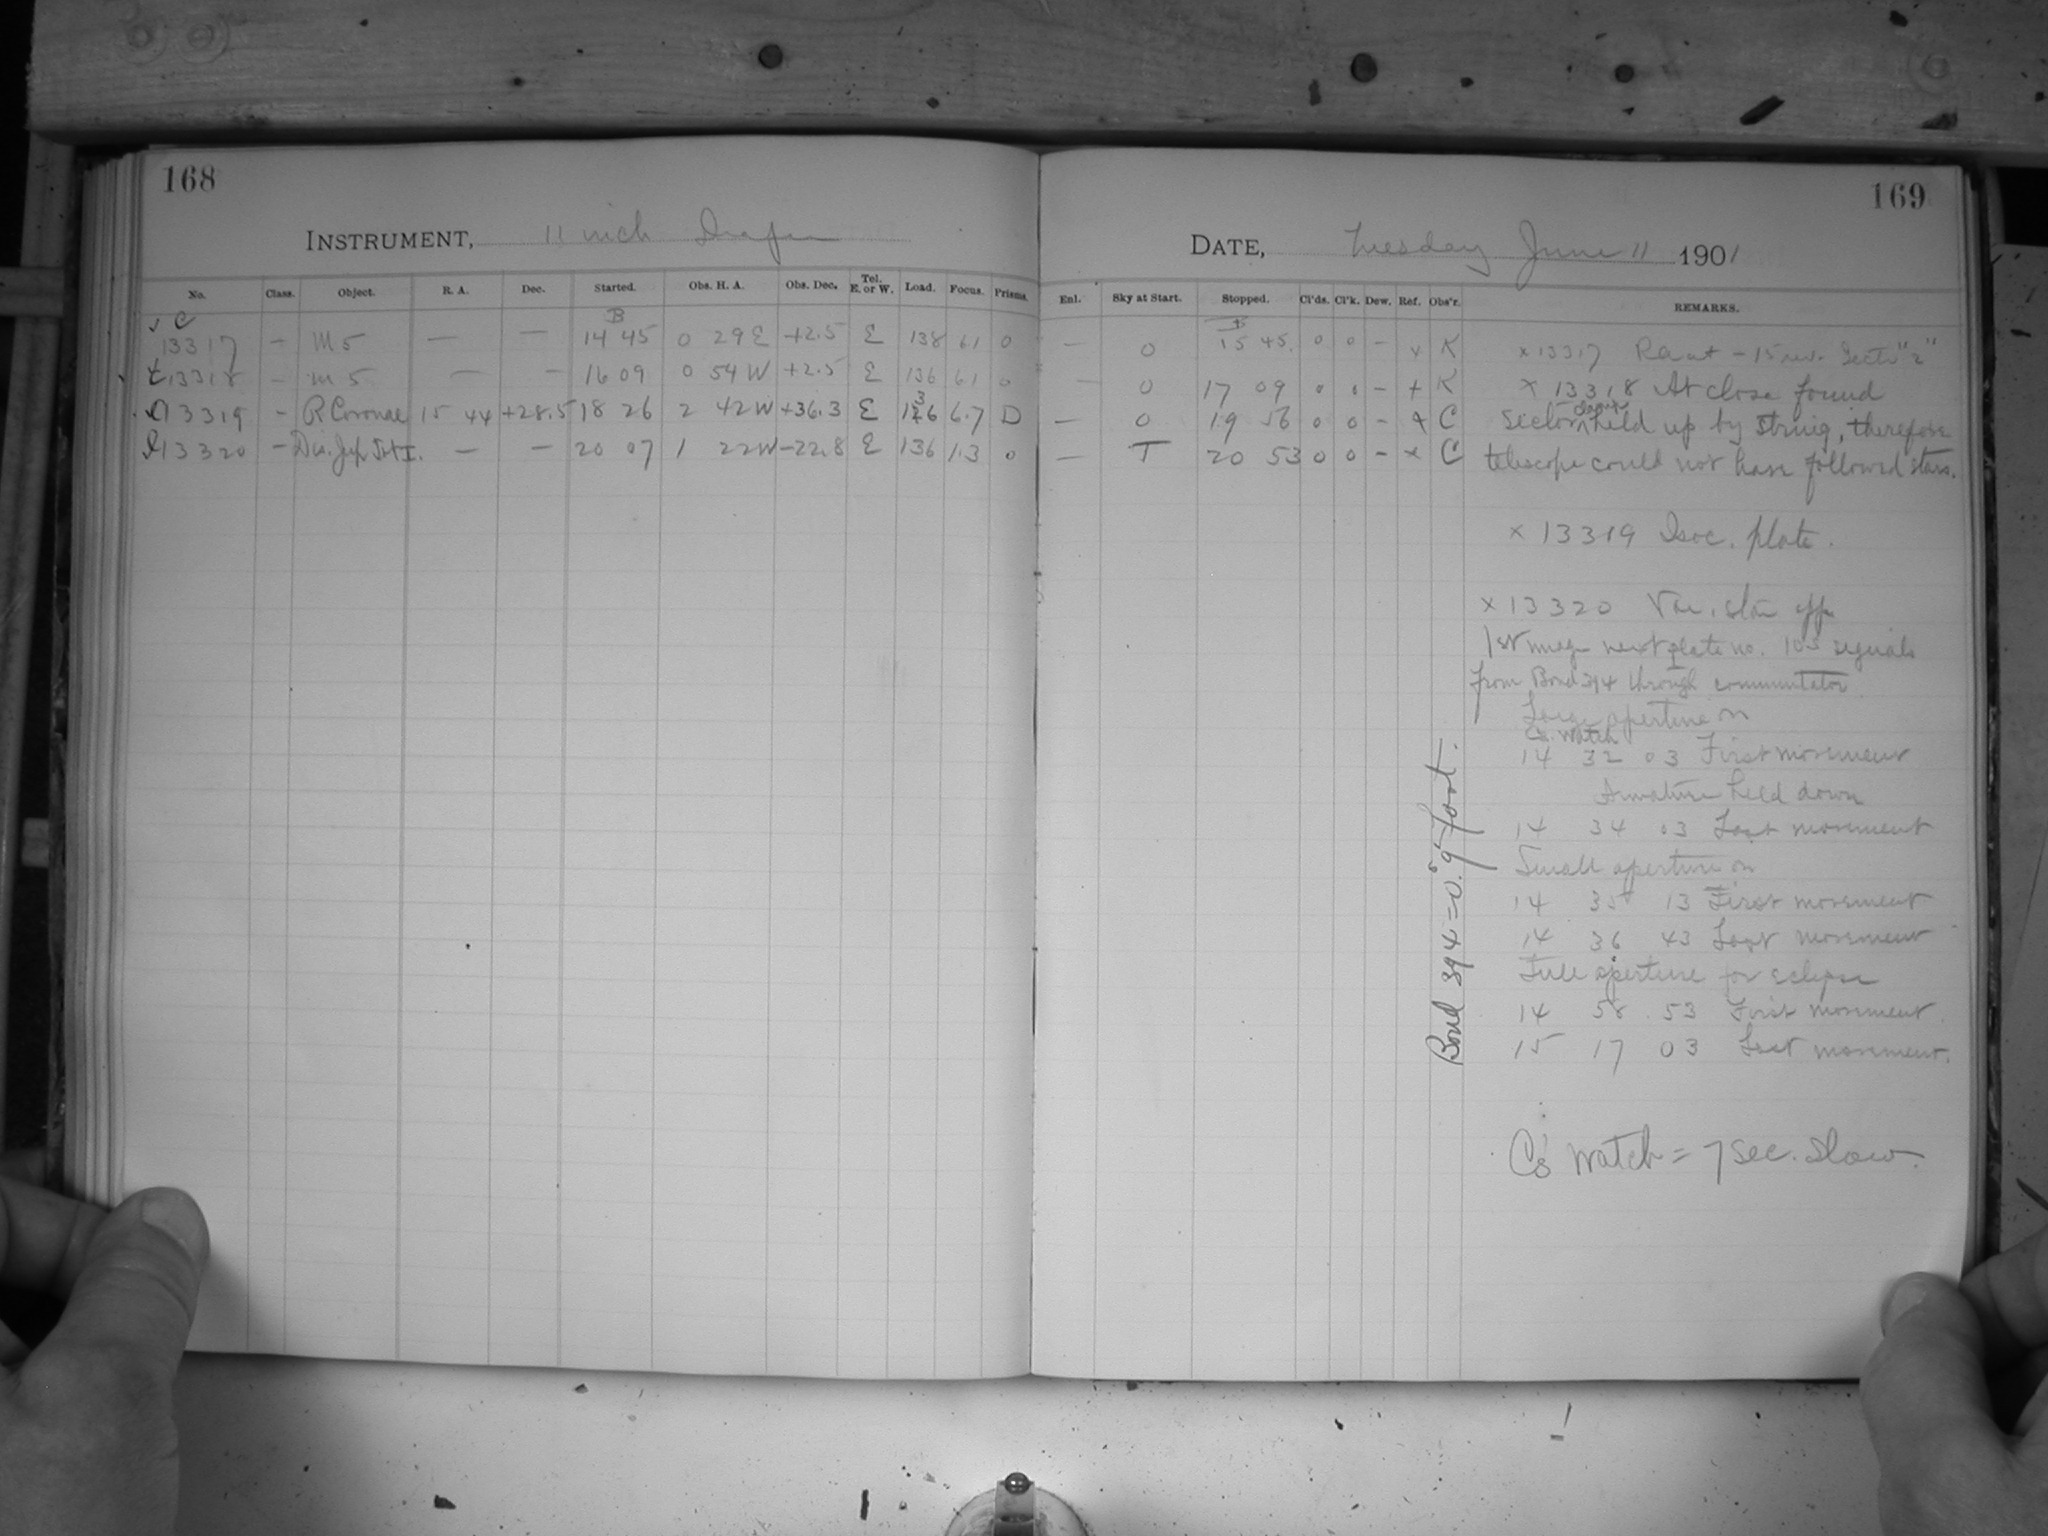 168
INSTRUMENT, 11 inch Draper
No. Class. Object. R. A. Dec. Started. Obs. H. A. Obs. Dec. Tel. E. or W. Load. Focus. Prisms.
C 13317 – M 5 — — B 14 45 0 29 E +2.5 E 138 61 0
C 13318 – M 5 — — 16 09 0 54 W +2.5 E 136 61 0
C 13319 – R Coronae 15 44 +28.5 18 26 2 42 W +36.3 E 136 6.7 D
C 13320 – Dis. Jup. Sat I. — — 20 07 1 22 W –22.8 E 136 1.3 0
169
DATE, Tuesday June 11 1901
Enl. Sky at Start. Stopped. Cl'ds. Cl'k. Dew. Ref. Obs'r. REMARKS.
— 0 B 15 45. 0 0 – x K x 13317 – 15 rev. Sector "2"
— 0 17 09 0 0 – x K x 13318 At close found
— 0 19 56 0 0 – x C Sector held up by string, therefore
— T 20 53 0 0 – x C telescope could not have followed stars.
x 13319 Isoc. plate.
x 13320 Var. star app
1st image next plate no. 103 signals
from Bond 394 through commutator
Large aperture on
C's watch
14 32 03 First movement
Armature held down
14 34 03 Last movement
Small aperture on
14 35 13 First movement
14 36 43 Last movement
Full aperture for eclipse
14 58 53 First movement.
15 17 03 Last movement.
Bond 394 = 0.s9 fast.
C's watch = 7 sec. slow.